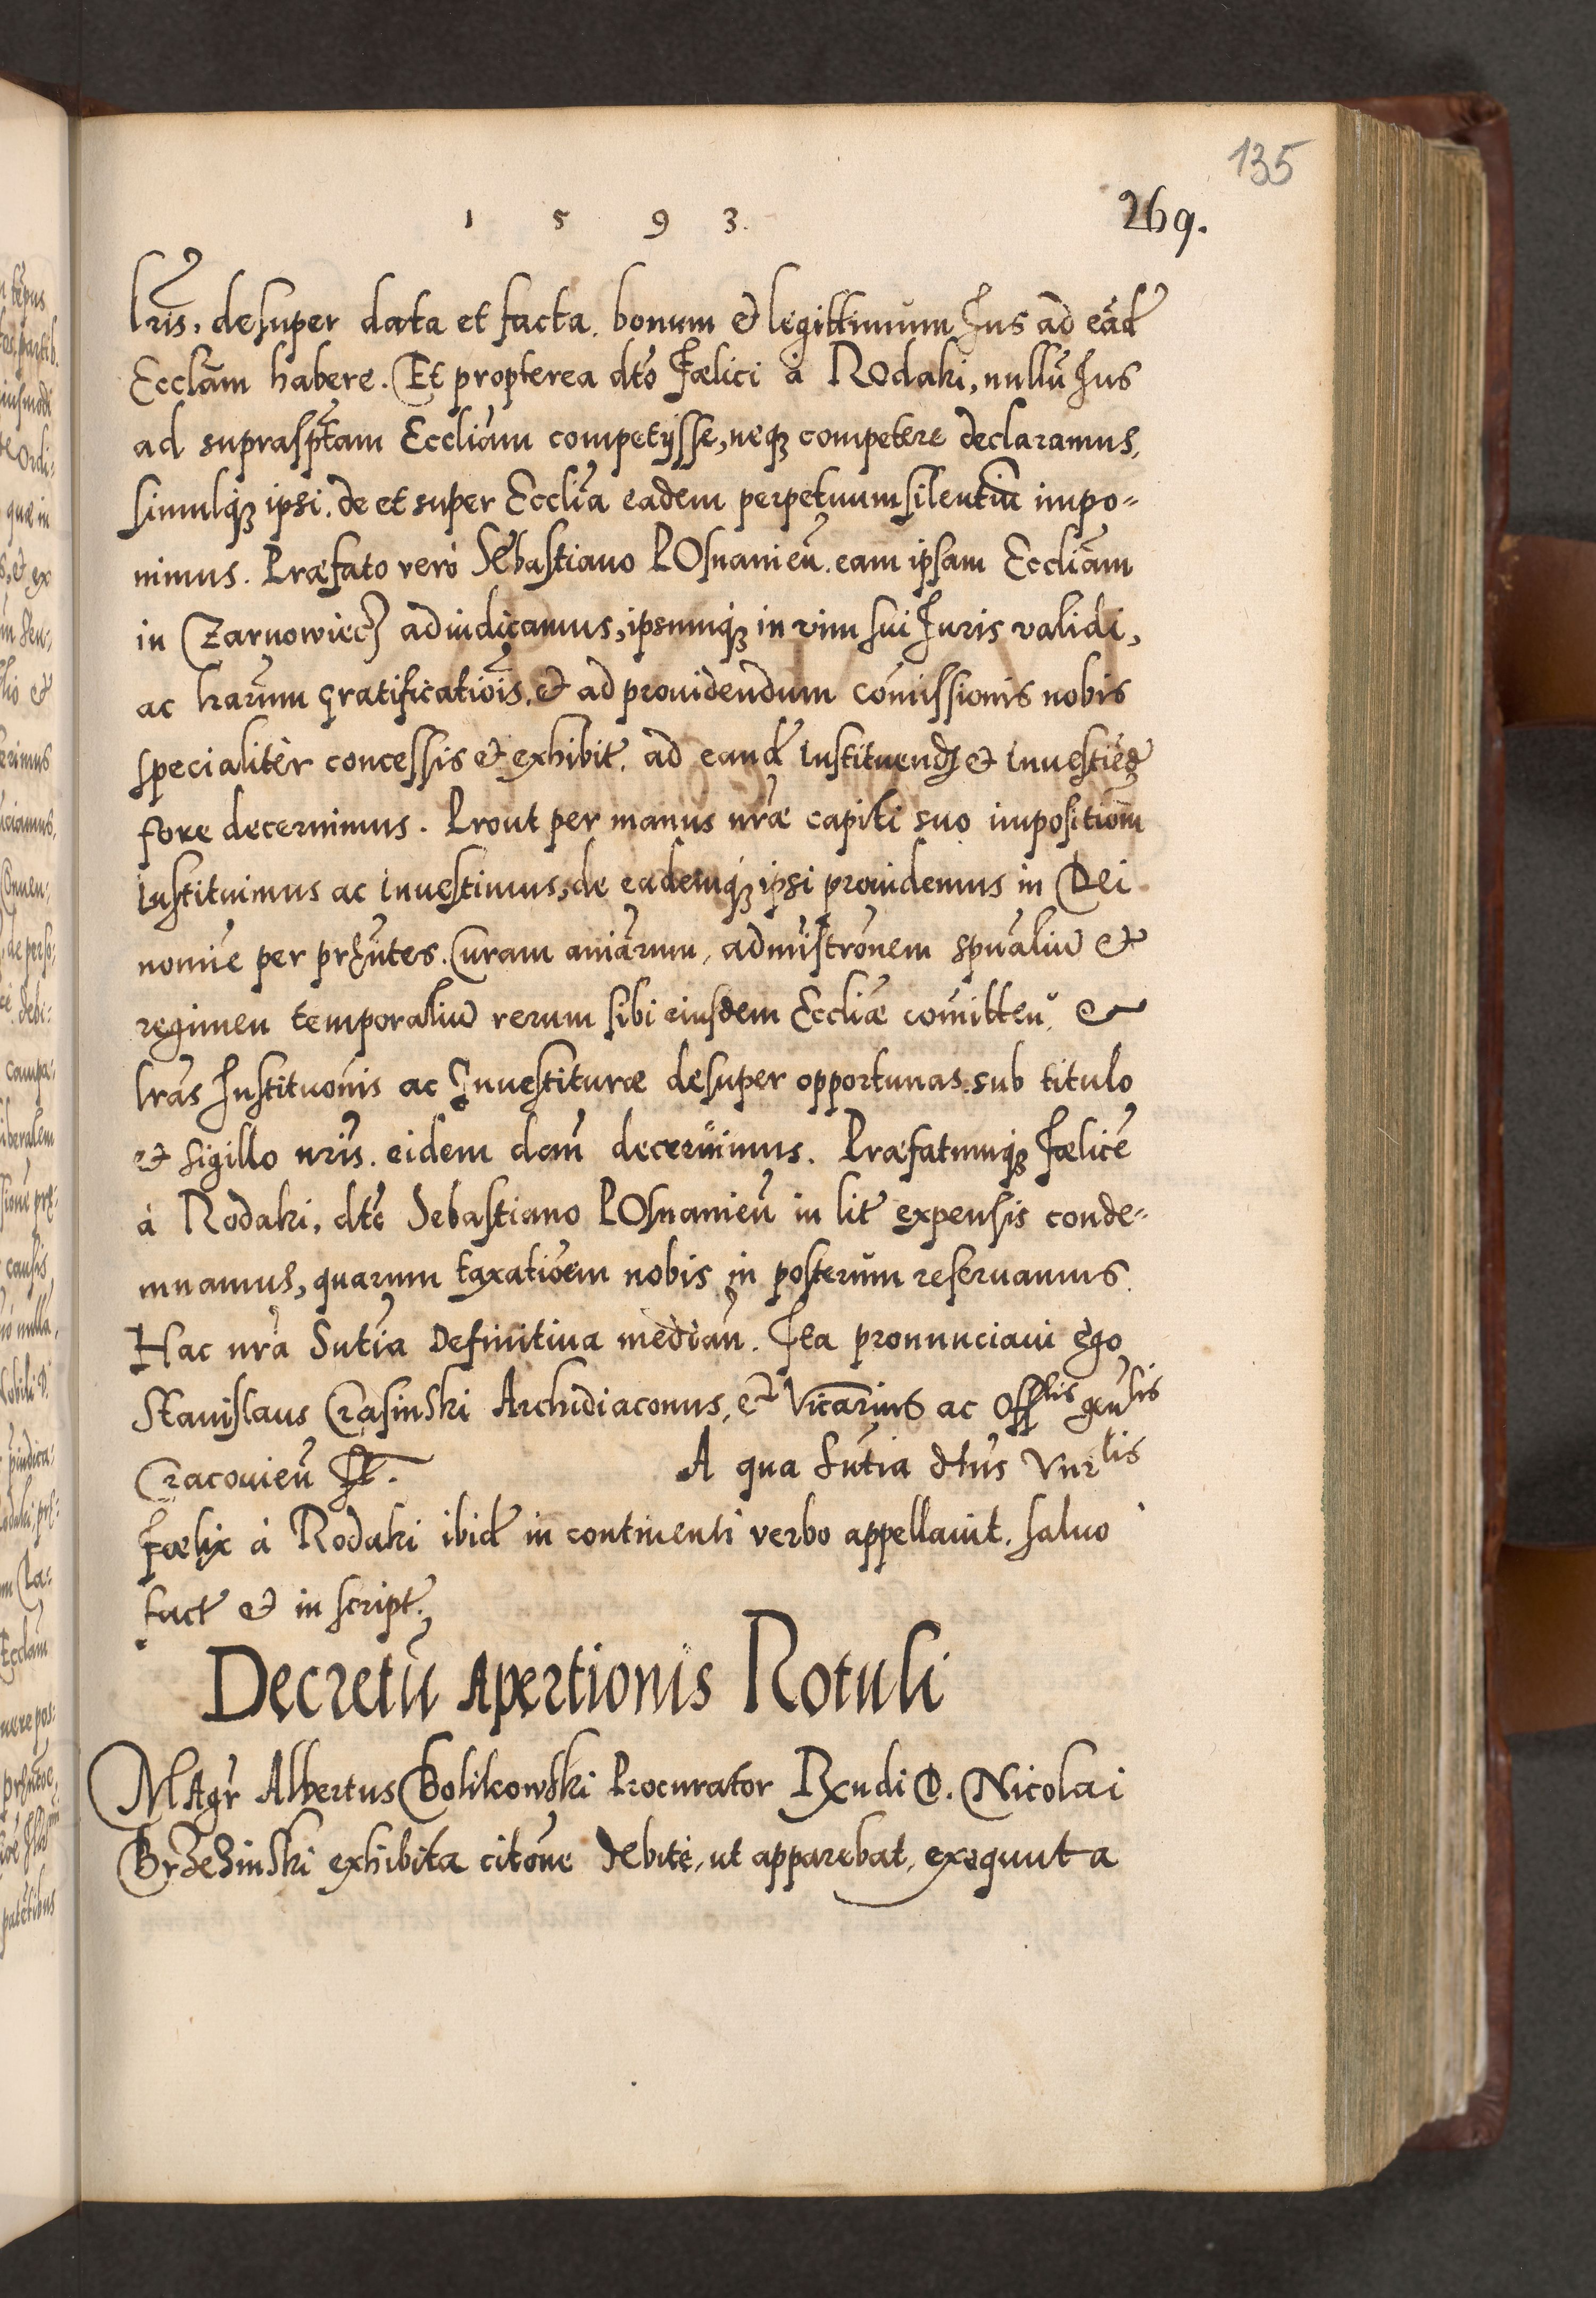 135
1 5 9 3.
269.
lr̃is, desuper data et facta, bonum et legittimum Jus ad eãd
Ecclãm habere. Et propterea dt̃o Fœlici à Rodaki, nullũ Jus
ad suprasp̃tam Eccliãm competÿsse, neqꝫ competere declaramus,
simulqꝫ ipsi, de et super Ecclĩa eadem perpetuum silentiũ impo-
nimus. Præfato verò Sebastiano POsnanieñ. eam ipsam Eccliãm
in Czarnowiecz adiudicamus, ipsumqꝫ in vim sui Juris validi,
ac harum gratificatiõis, et ad prouidendum com̃issionis nobis
specialiter concessis et exhibit. ad eand Instituend et Inuestiẽd
fore decernimus. Prout per manus nr̃æ capiti suo impositiom̃
Instituimus ac Inuestimus, de eademqꝫ ipsi prouidemus in Dei
nomĩe per prñtes. Curam aniãrum, admĩstrõnem spũaliũ et
regimen temporaliũ rerum sibi eiusdem Eccliæ com̃itteñ, et
lrãs Institũonis ac Inuestituræ desuper opportunas, sub titulo
et sigillo nr̃is. eidem dañ decernimus. Præfatumqꝫ Fœlicẽ
à Rodaki, dt̃o Sebastiano POsnanieñ in lit expensis conde-
mnamus, quarum taxatiõem nobis in posterum reseruamus.
Hac nrã Sñtia Definitiua mediañ. Ita pronunciaui ego
Stanislaus Crasinski Archidiaconus, et Vicarius ac Offlis gen̄lis
Cracouieñ
A qua Sñtia dt̃us Vnrlis
Fœlix à Rodaki ibid in continenti verbo appellauit. saluo
fact et in script.
Decretũ Apertionis Rotuli
MAgr̃ Albertus Bolikowski Procurator Rxndi D. Nicolai
Brzezinski exhibita citõne debite, ut apparebat, exequuta